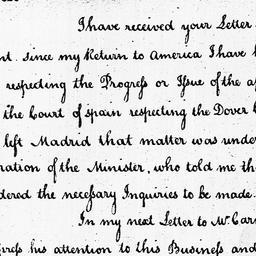 I have received your Letter
nt. since my Return to America I have
respecting the Progreſs or Iſsue of the a
the Court of spain respecting the Dover
left Madrid that matter was under
ration of the Minister, who told me th
dered the neceſsary Inquiries to be made
In my next Letter to Mr. Car
preſs his attention to this Busineſs and